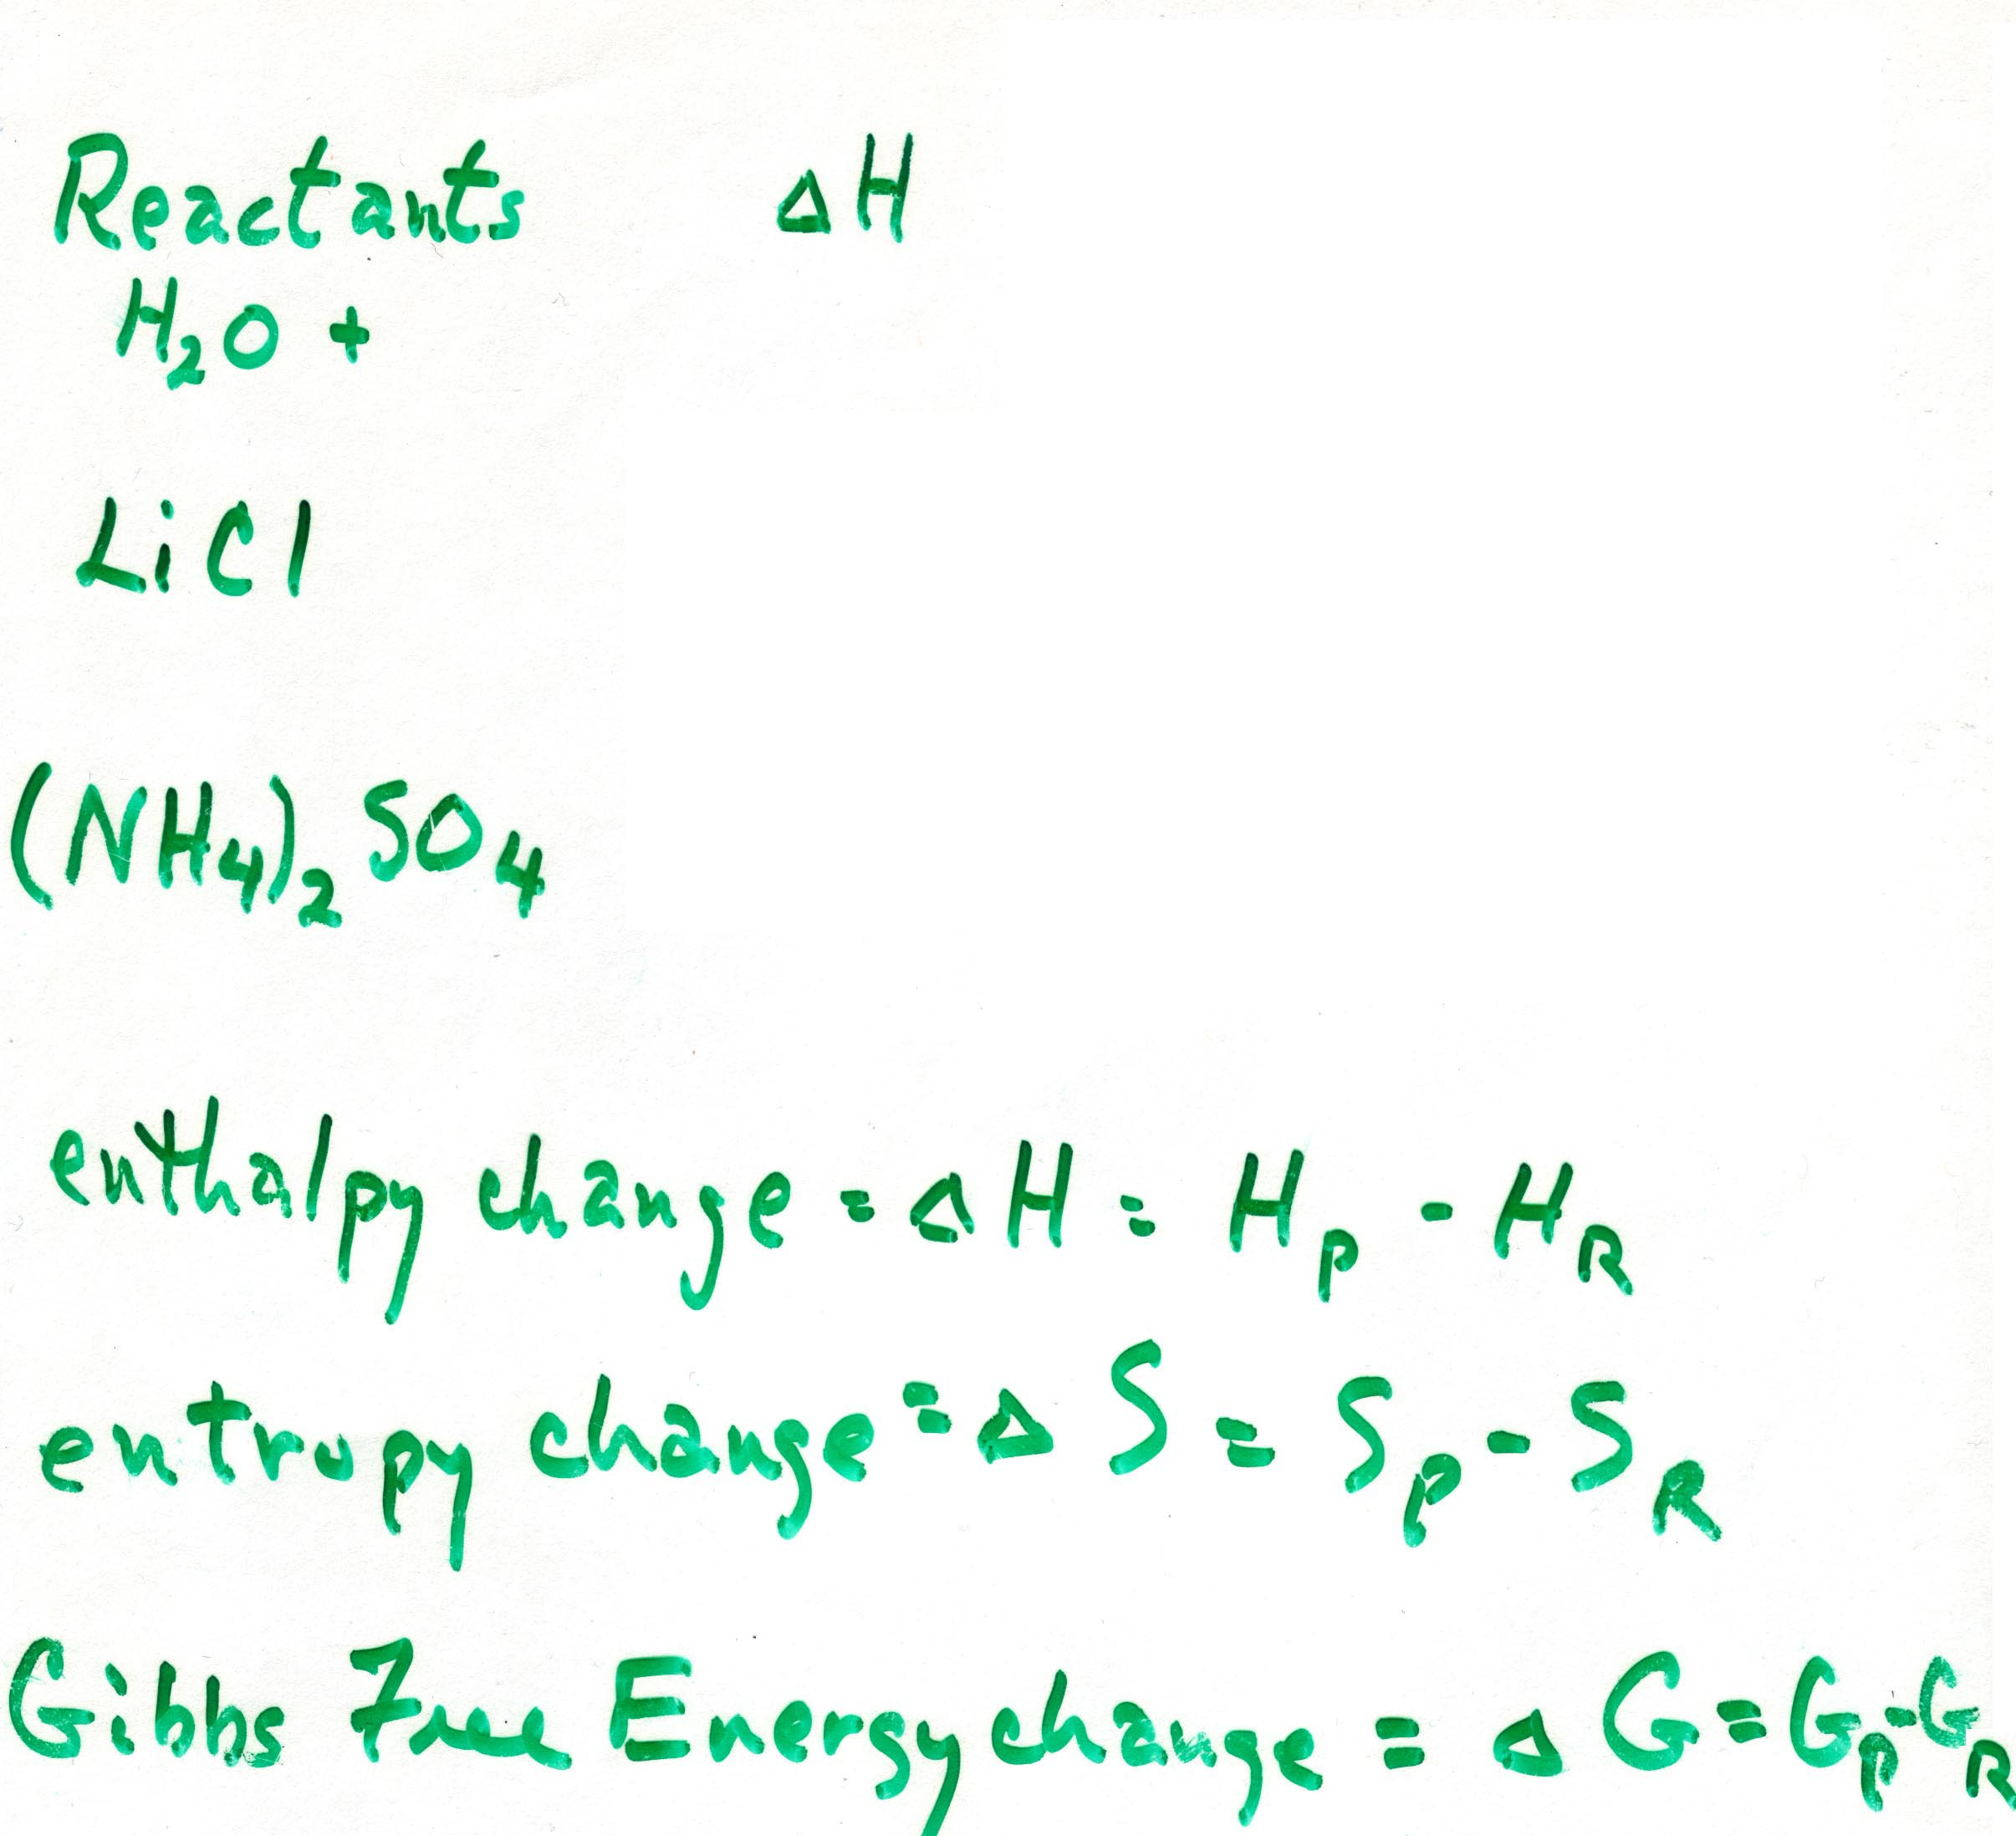 Reactants ΔH
H₂O +
LiCl
(NH₄)₂SO₄
enthalpy change = ΔH = H_P - H_R
entropy change = ΔS = S_P - S_R
Gibbs Free Energy change = ΔG = G_P - G_R